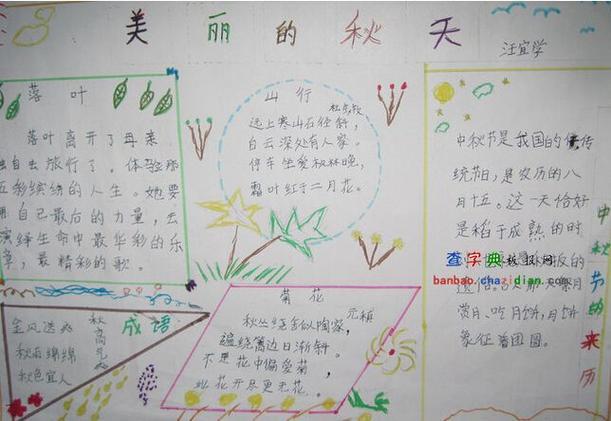 美丽的秋天
汪宜学
落叶
落叶离开了母亲,
独自去旅行了。体验那
五彩缤纷的人生。她要
用自己最后的力量,去
演绎生命中最华彩的乐
章,最精彩的歌。
山行
杜牧
远上寒山石径斜,
白云深处有人家。
停车坐爱枫林晚,
霜叶红于二月花。
中秋节是我国的传
统节日,是农历的八
月十五。这一天恰好
是稻子成熟的时
赏月、吃月饼,月饼
象征着团圆。
中秋节的来历
查字典
banbao.chazidian.com
成语
金风送爽
秋高气爽
秋雨绵绵
秋色宜人
菊花
元稹
秋丛绕舍似陶家,
遍绕篱边日渐斜。
不是花中偏爱菊,
此花开尽更无花。